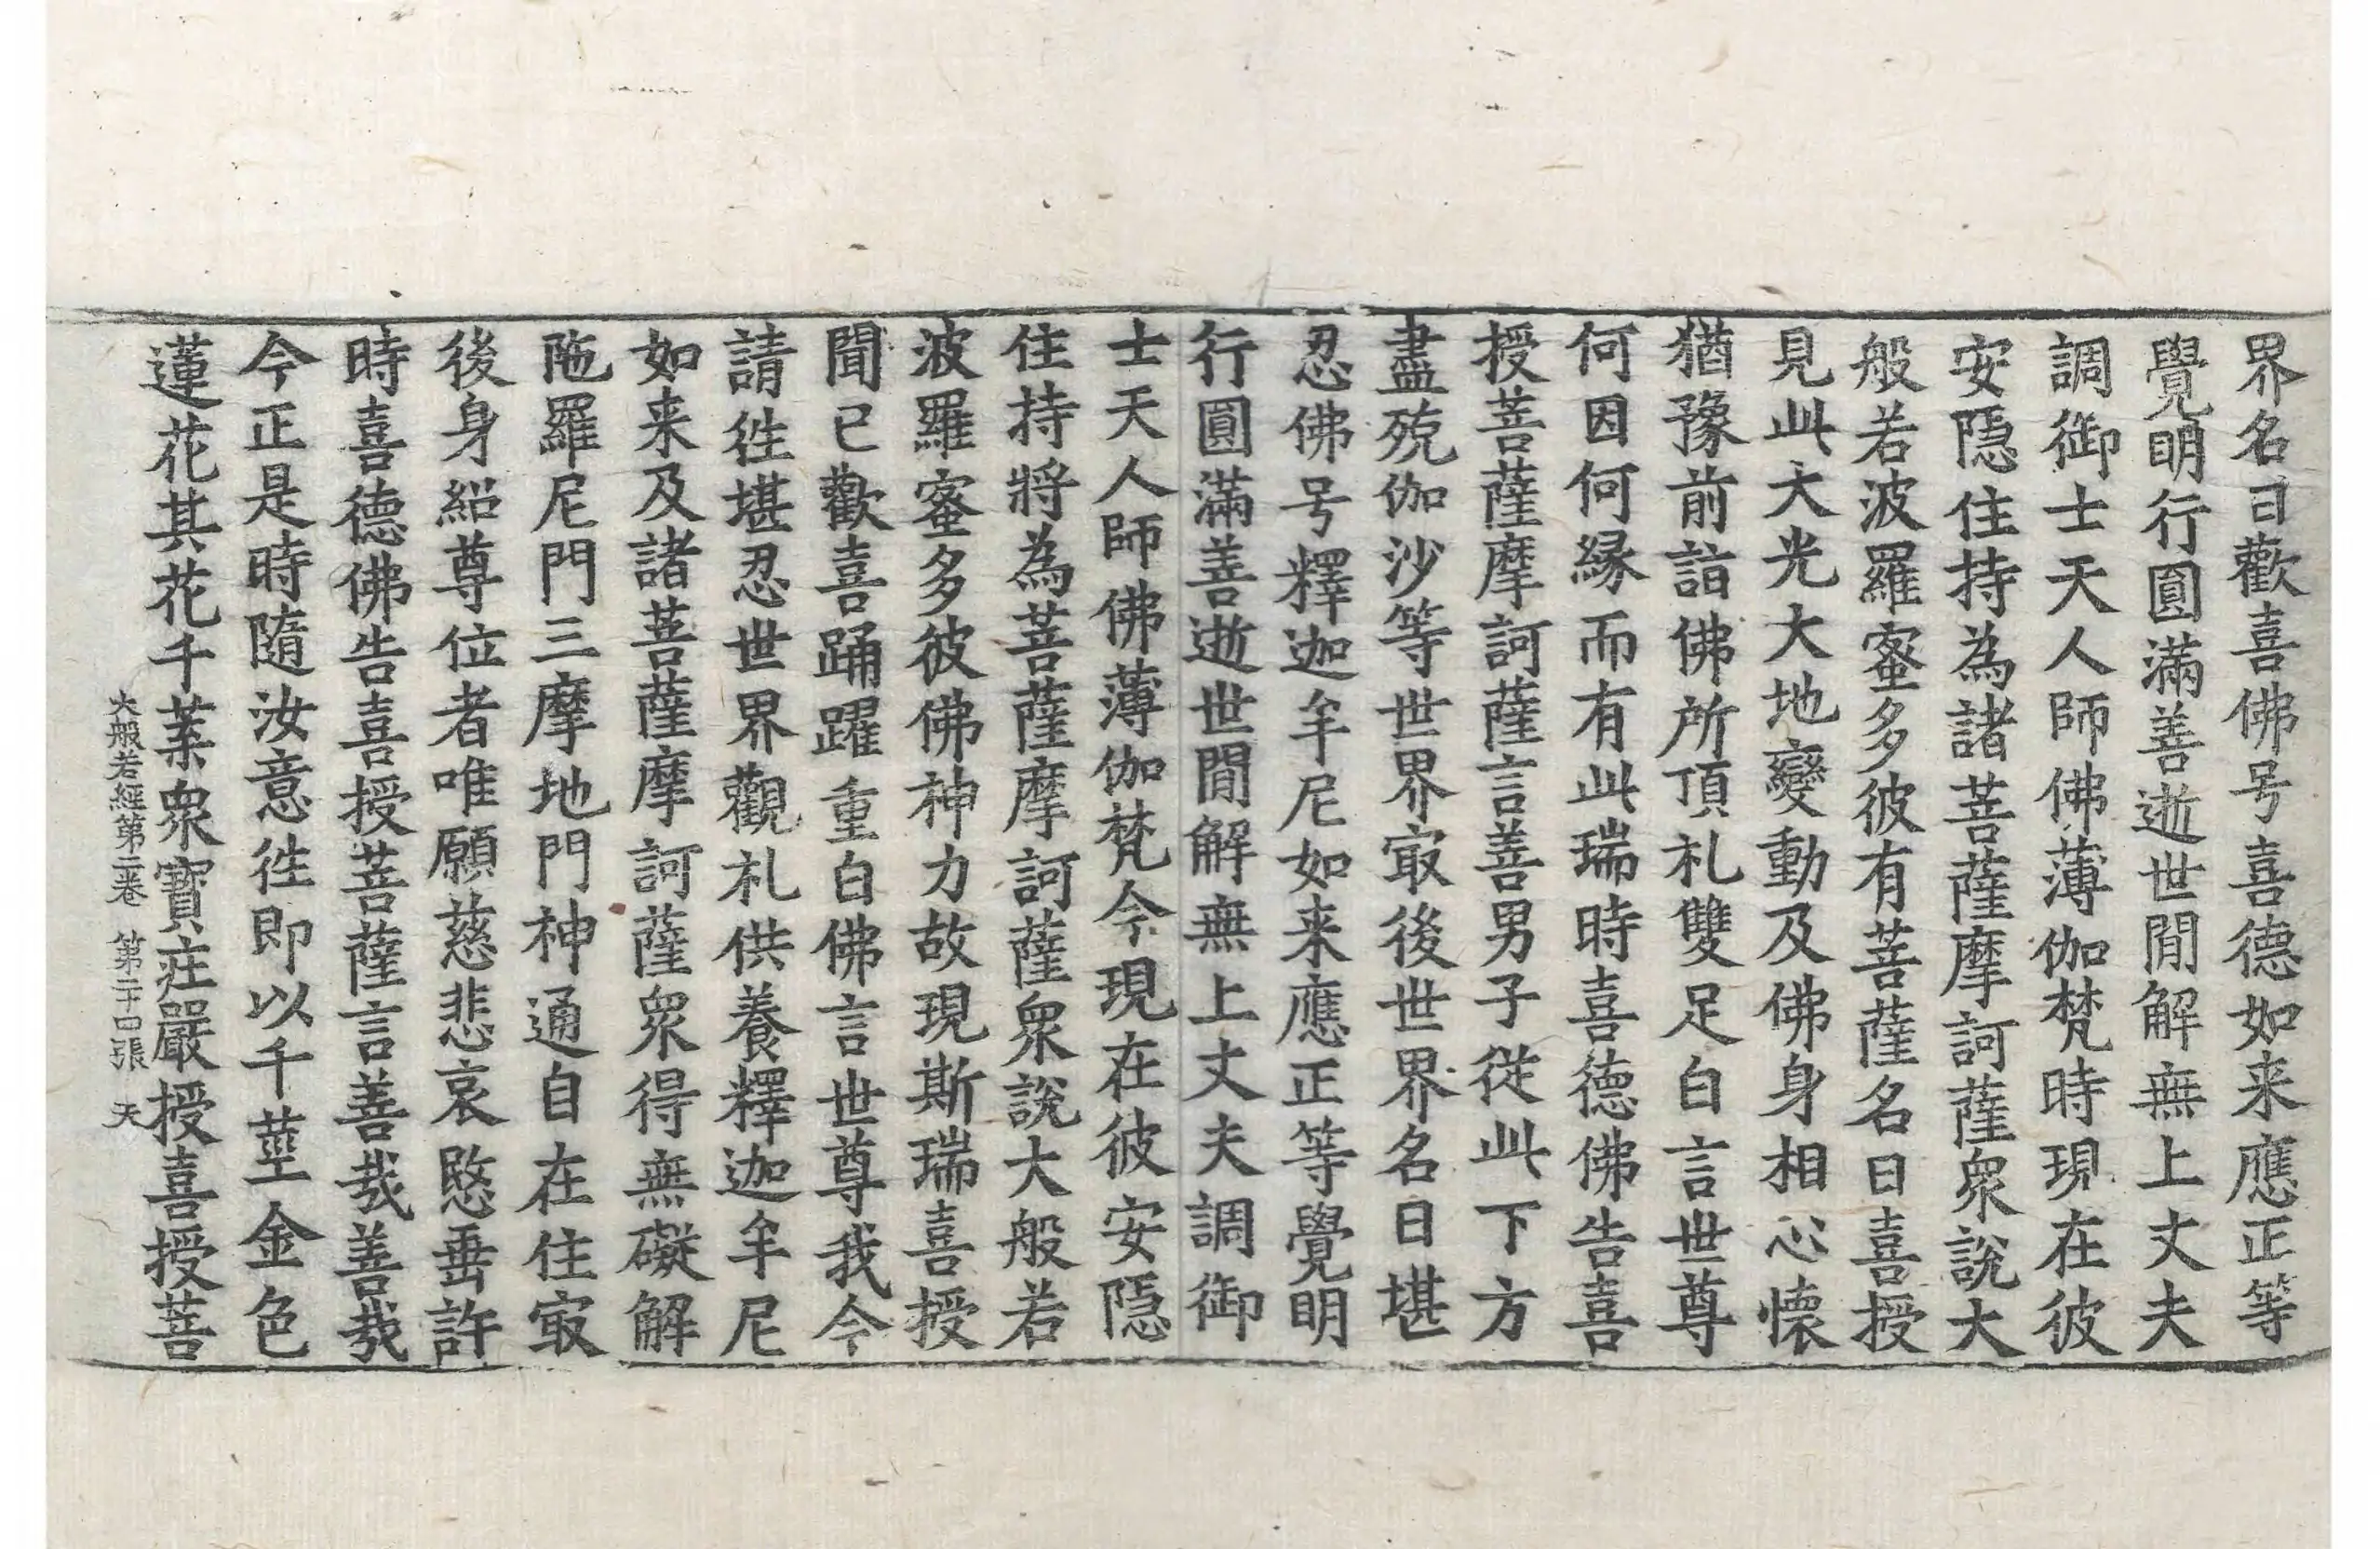 界名曰歡喜佛号喜德如来應正等
覺明行圓滿善逝世間解無上丈夫
調御士天人師佛薄伽梵時現在彼
安隱住持為諸菩薩摩訶薩衆說大
般若波羅蜜多彼有菩薩名曰喜授
見此大光大地變動及佛身相心懷
猶豫前詣佛所頂礼雙足白言世尊
何因何縁而有此瑞時喜德佛告喜
授菩薩摩訶薩言善男子從此下方
盡殑伽沙等世界㝡後世界名曰堪
忍佛号釋迦牟尼如来應正等覺明
行圓滿善逝世間解無上丈夫調御
士天人師佛薄伽梵今現在彼安隱
住持將為菩薩摩訶薩衆說大般若
波羅蜜多彼佛神力故現斯瑞喜授
聞已歡喜踊躍重白佛言世尊我今
請徃堪忍世界觀礼供養釋迦牟尼
如来及諸菩薩摩訶薩衆得無礙解
陁羅尼門三摩地門神通自在住㝡
後身紹尊位者唯願慈悲哀愍垂許
時喜德佛告喜授菩薩言善哉善哉
今正是時隨汝意徃即以千莖金色
蓮花其花千葉衆寶莊嚴授喜授菩
大般若經第二卷 第二十四張 天